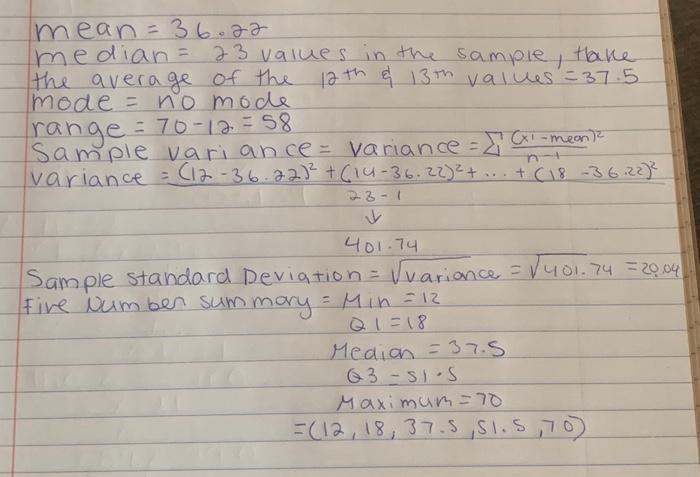 mean = 36.22
median = 23 values in the sample, take
the average of the 12th & 13th values = 37.5
mode = no mode
range = 70-12 = 58
Sample variance = variance = Σ (xi - mean)²
n-1
variance = (12 - 36.22)² + (14 - 36.22)² + ... + (18 - 36.22)²
23 - 1
↓
401.74
Sample Standard Deviation = √variance = √401.74 = 20.04
Five Number summary = Min = 12
Q1 = 18
Median = 37.5
Q3 = 51.5
Maximum = 70
= (12, 18, 37.5, 51.5, 70)